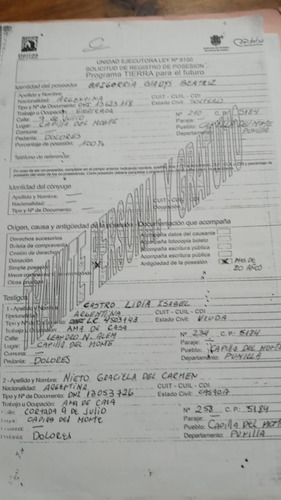 UNIDAD EJECUTORA LEY Nº 9150
SOLICITUD DE REGISTRO DE POSESION
Programa TIERRA para el futuro
Identidad del poseedor
Apellido y Nombre: BEATRIZ
Nacionalidad: ARGENTINA CUIT - CUIL - CDI
Tipo y Nº de Documento: Estado Civil: SOLTERO
Trabajo u Ocupación:
Calle: 9 DE JULIO Nº 250 C.P.: 5184
Lugar: CAPILLA DEL MONTE Paraje:
Comuna: Pueblo: CAPILLA DEL MONTE
Pedanía: DOLORES Departamento: PUNILLA
Porcentaje de posesión: 100 %
Teléfono de referencia:
Identidad del cónyuge
Apellido y Nombre:
Nacionalidad: CUIT - CUIL - CDI
Tipo y Nº de Documento: Estado Civil:
Origen, causa y antigüedad de la posesión - Documentación que acompaña
Derechos sucesorios Acompaña datos del causante
Boleto de compraventa Acompaña fotocopia boleto
Cesión de derechos Acompaña escritura pública
Donación Acompaña escritura pública
Simple posesión X Antigüedad de la posesión X MAS DE
20 AÑOS
TRÁMITE PERSONAL Y GRATUITO
Testigos
1 - Apellido y Nombre: CASTRO LIDIA ISABEL
Nacionalidad: ARGENTINA CUIT - CUIL - CDI
Tipo y Nº de Documento: LC Estado Civil: VIUDA
Trabajo u Ocupación: AMA DE CASA
Calle: LEANDRO N. ALEM Nº 234 5184
Lugar: CAPILLA DEL MONTE Paraje:
Comuna: Pueblo: CAPILLA DEL MONTE
Pedanía: DOLORES Departamento: PUNILLA
2 - Apellido y Nombre: NIETO GRACIELA DEL CARMEN
Nacionalidad: ARGENTINA CUIT - CUIL - CDI
Tipo y Nº de Documento: DNI 17053726 Estado Civil: CASADA
Trabajo u Ocupación: AMA DE CASA
Calle: CORTADA 9 DE JULIO Nº 258 C.P.: 5184
Lugar: CAPILLA DEL MONTE Paraje:
Comuna: Pueblo: CAPILLA DEL MONTE
Pedanía: DOLORES Departamento: PUNILLA